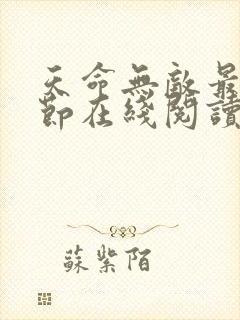 天命無敵最
節在綫閱讀
蘇紫陌